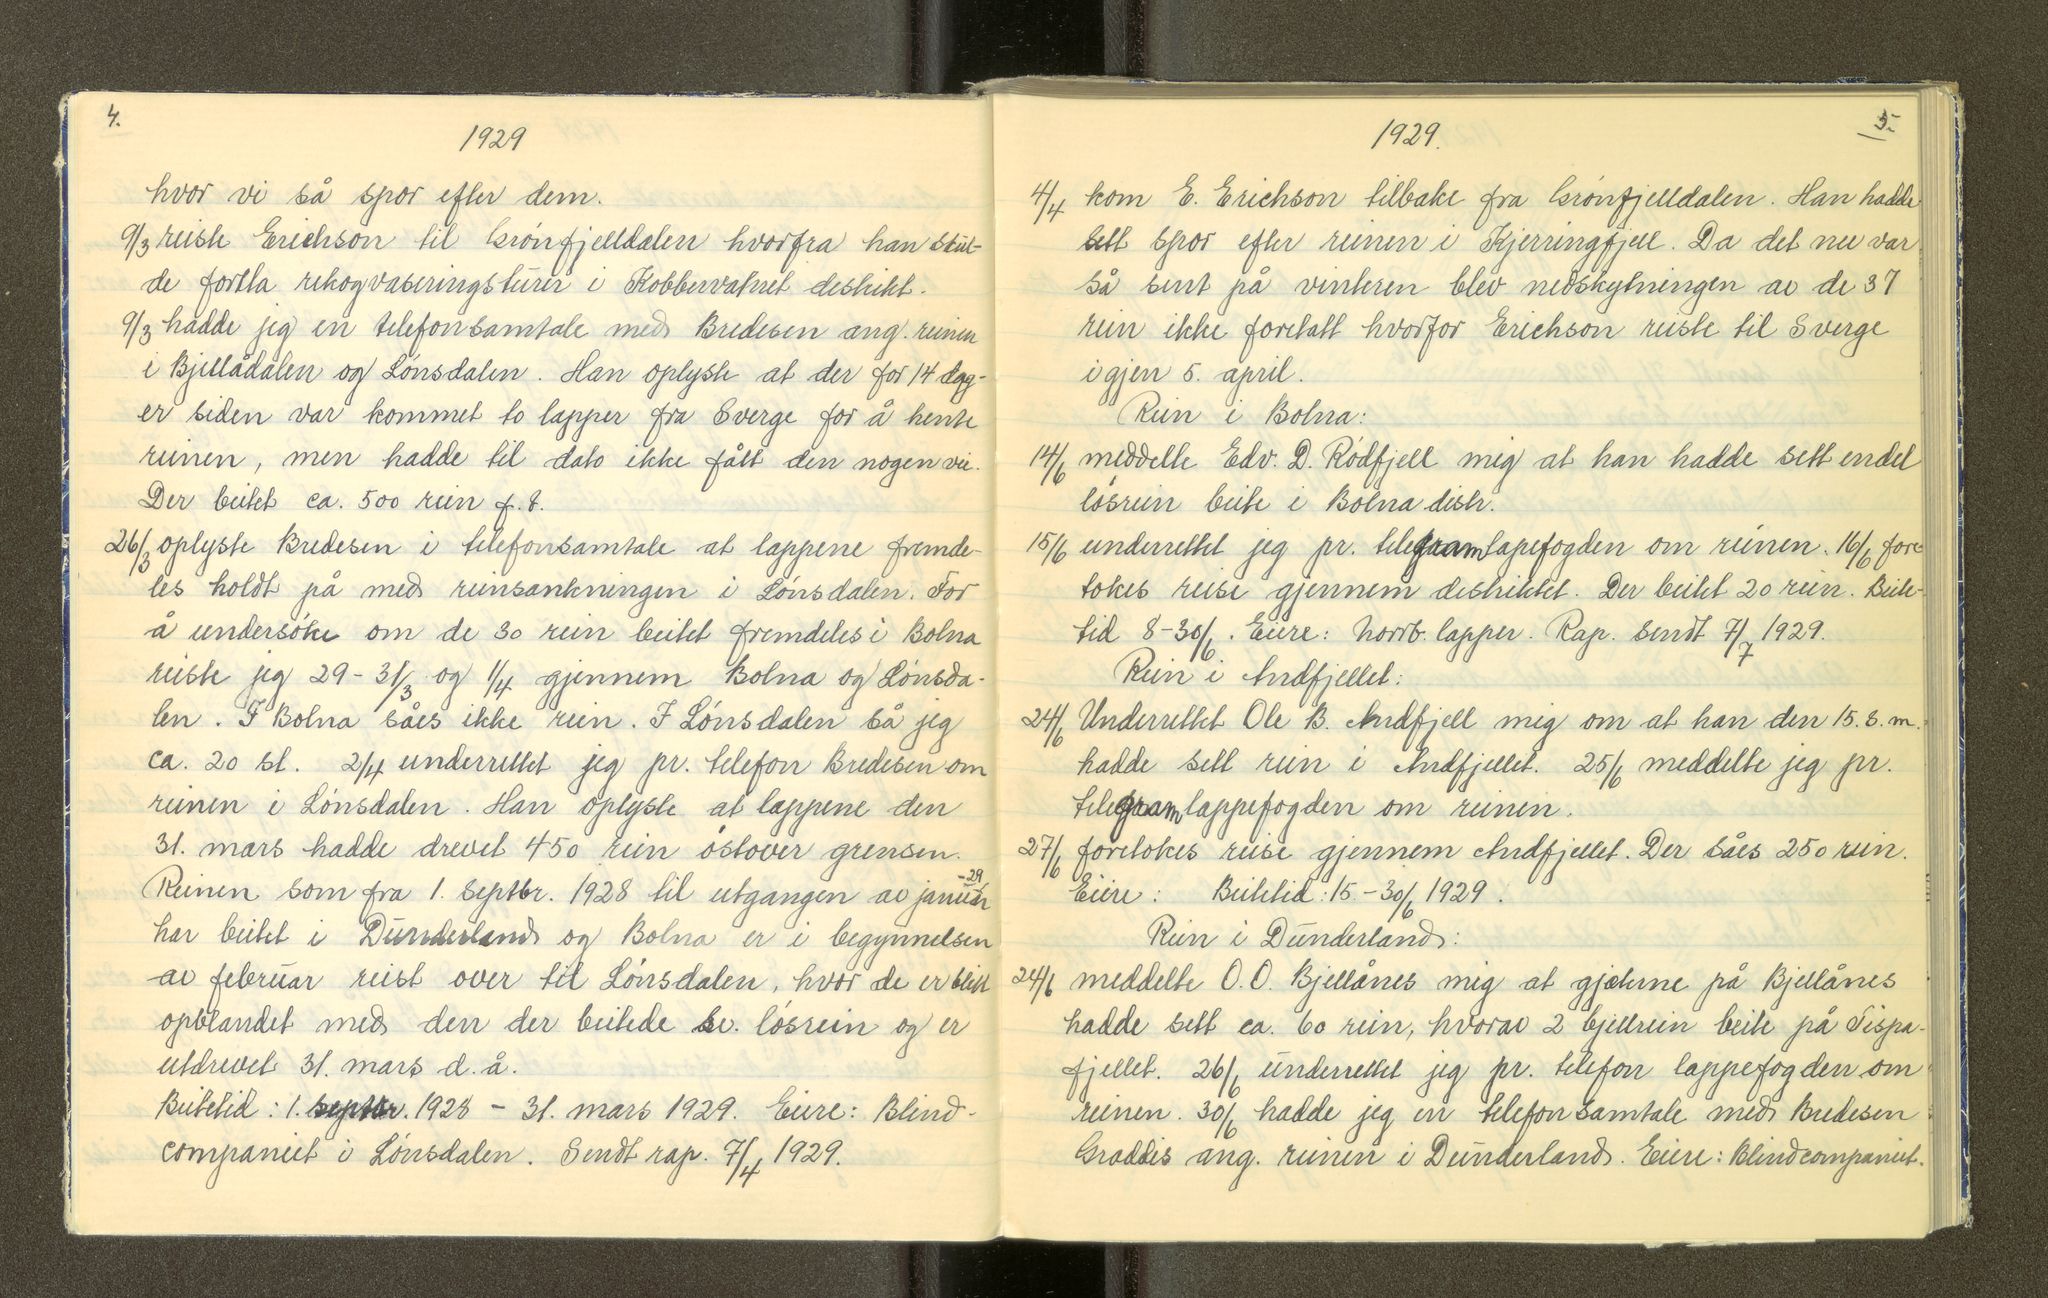 4.
1929
hvor vi så spor efter dem.
9/3 reiste Erichson til Grönfjelldalen hvorfra han skul-
de fortta rekogvaseringsturer i Kobbervatnet destrikt.
9/3 hadde jeg en telefonsamtale med Bredesen ang. reinen
i Bjellådalen og Lönsdalen. Han oplyste at der for 14 dag-
er siden var kommet to lapper fra Sverge for å hente
reinen, men hadde til dato ikke fått den nogen vei.
Der beitet ca. 500 rein f. t.
26/3 oplyste Bredesen i telefonsamtale at lappene fremde-
les holdt på med reinsankningen i Lönsdalen. For
å undersöke om de 30 rein beitet fremdeles i Bolna
reiste jeg 29-31/3 og 1/4 gjennem Bolna og Lönsda-
len. I Bolna såes ikke rein. I Lönsdalen så jeg
ca. 20 st. 2/4 underrettet jeg pr. telefon Bredesen om
reinen i Lönsdalen. Han oplyste at lappene den
31. mars hadde drevet 450 rein östover grensen.
Reinen som fra 1. septbr. 1928 til utgangen av januar -29
har beitet i Dunderland og Bolna er i begynnelsen
av februar reist over til Lönsdalen, hvor de er blitt
opblandet med den der beitede sv. lösrein og er
utdrevet 31. mars d.å.
Beitetid: 1. septbr. 1928 - 31. mars 1929. Eiere: Blind-
companiet i Lönsdalen. Sendt rap. 7/4 1929.
5.
1929.
4/4 kom E. Erichson tilbake fra Grönfjelldalen. Han hadde
sett spor efter reinen i Kjerringfjell. Da det nu var
så sent på vinteren blev nedskytningen av de 37
rein ikke foretatt hvorfor Erichson reiste til Sverge
igjen 5. april.
Rein i Bolna:
14/6 meddelte Edv. D. Rödfjell mig at han hadde sett endel
lösrein beite i Bolna distr.
15/6 underrettet jeg pr. telegram lapefogden om reinen. 16/6 fore-
tokes reise gjennem destriktet. Der beitet 20 rein. Beite-
tid 8-30/6. Eiere: Norrb. lapper. Rap. sendt 7/7 1929.
Rein i Andfjellet:
24/6 Underrettet Ole B. Andfjell mig om at han den 15. s. m.
hadde sett rein i Andfjellet. 25/6 meddelte jeg pr.
telegram lappefogden om reinen.
27/6 foretokes reise gjennem Andfjellet. Der såes 250 rein.
Eiere: Beitetid: 15-30/6 1929.
Rein i Dunderland:
24/6 meddelte O. O. Bjellånes mig at gjæterne på Bjellånes
hadde sett ca. 60 rein, hvorav 2 bjellrein beite på Tespa-
fjellet. 26/6 underrettet jeg pr. telefon lappefogden om
reinen. 30/6 hadde jeg en telefonsamtale med Bredesen
Graddis ang. reinen i Dunderland. Eiere: Blindcompaniet.